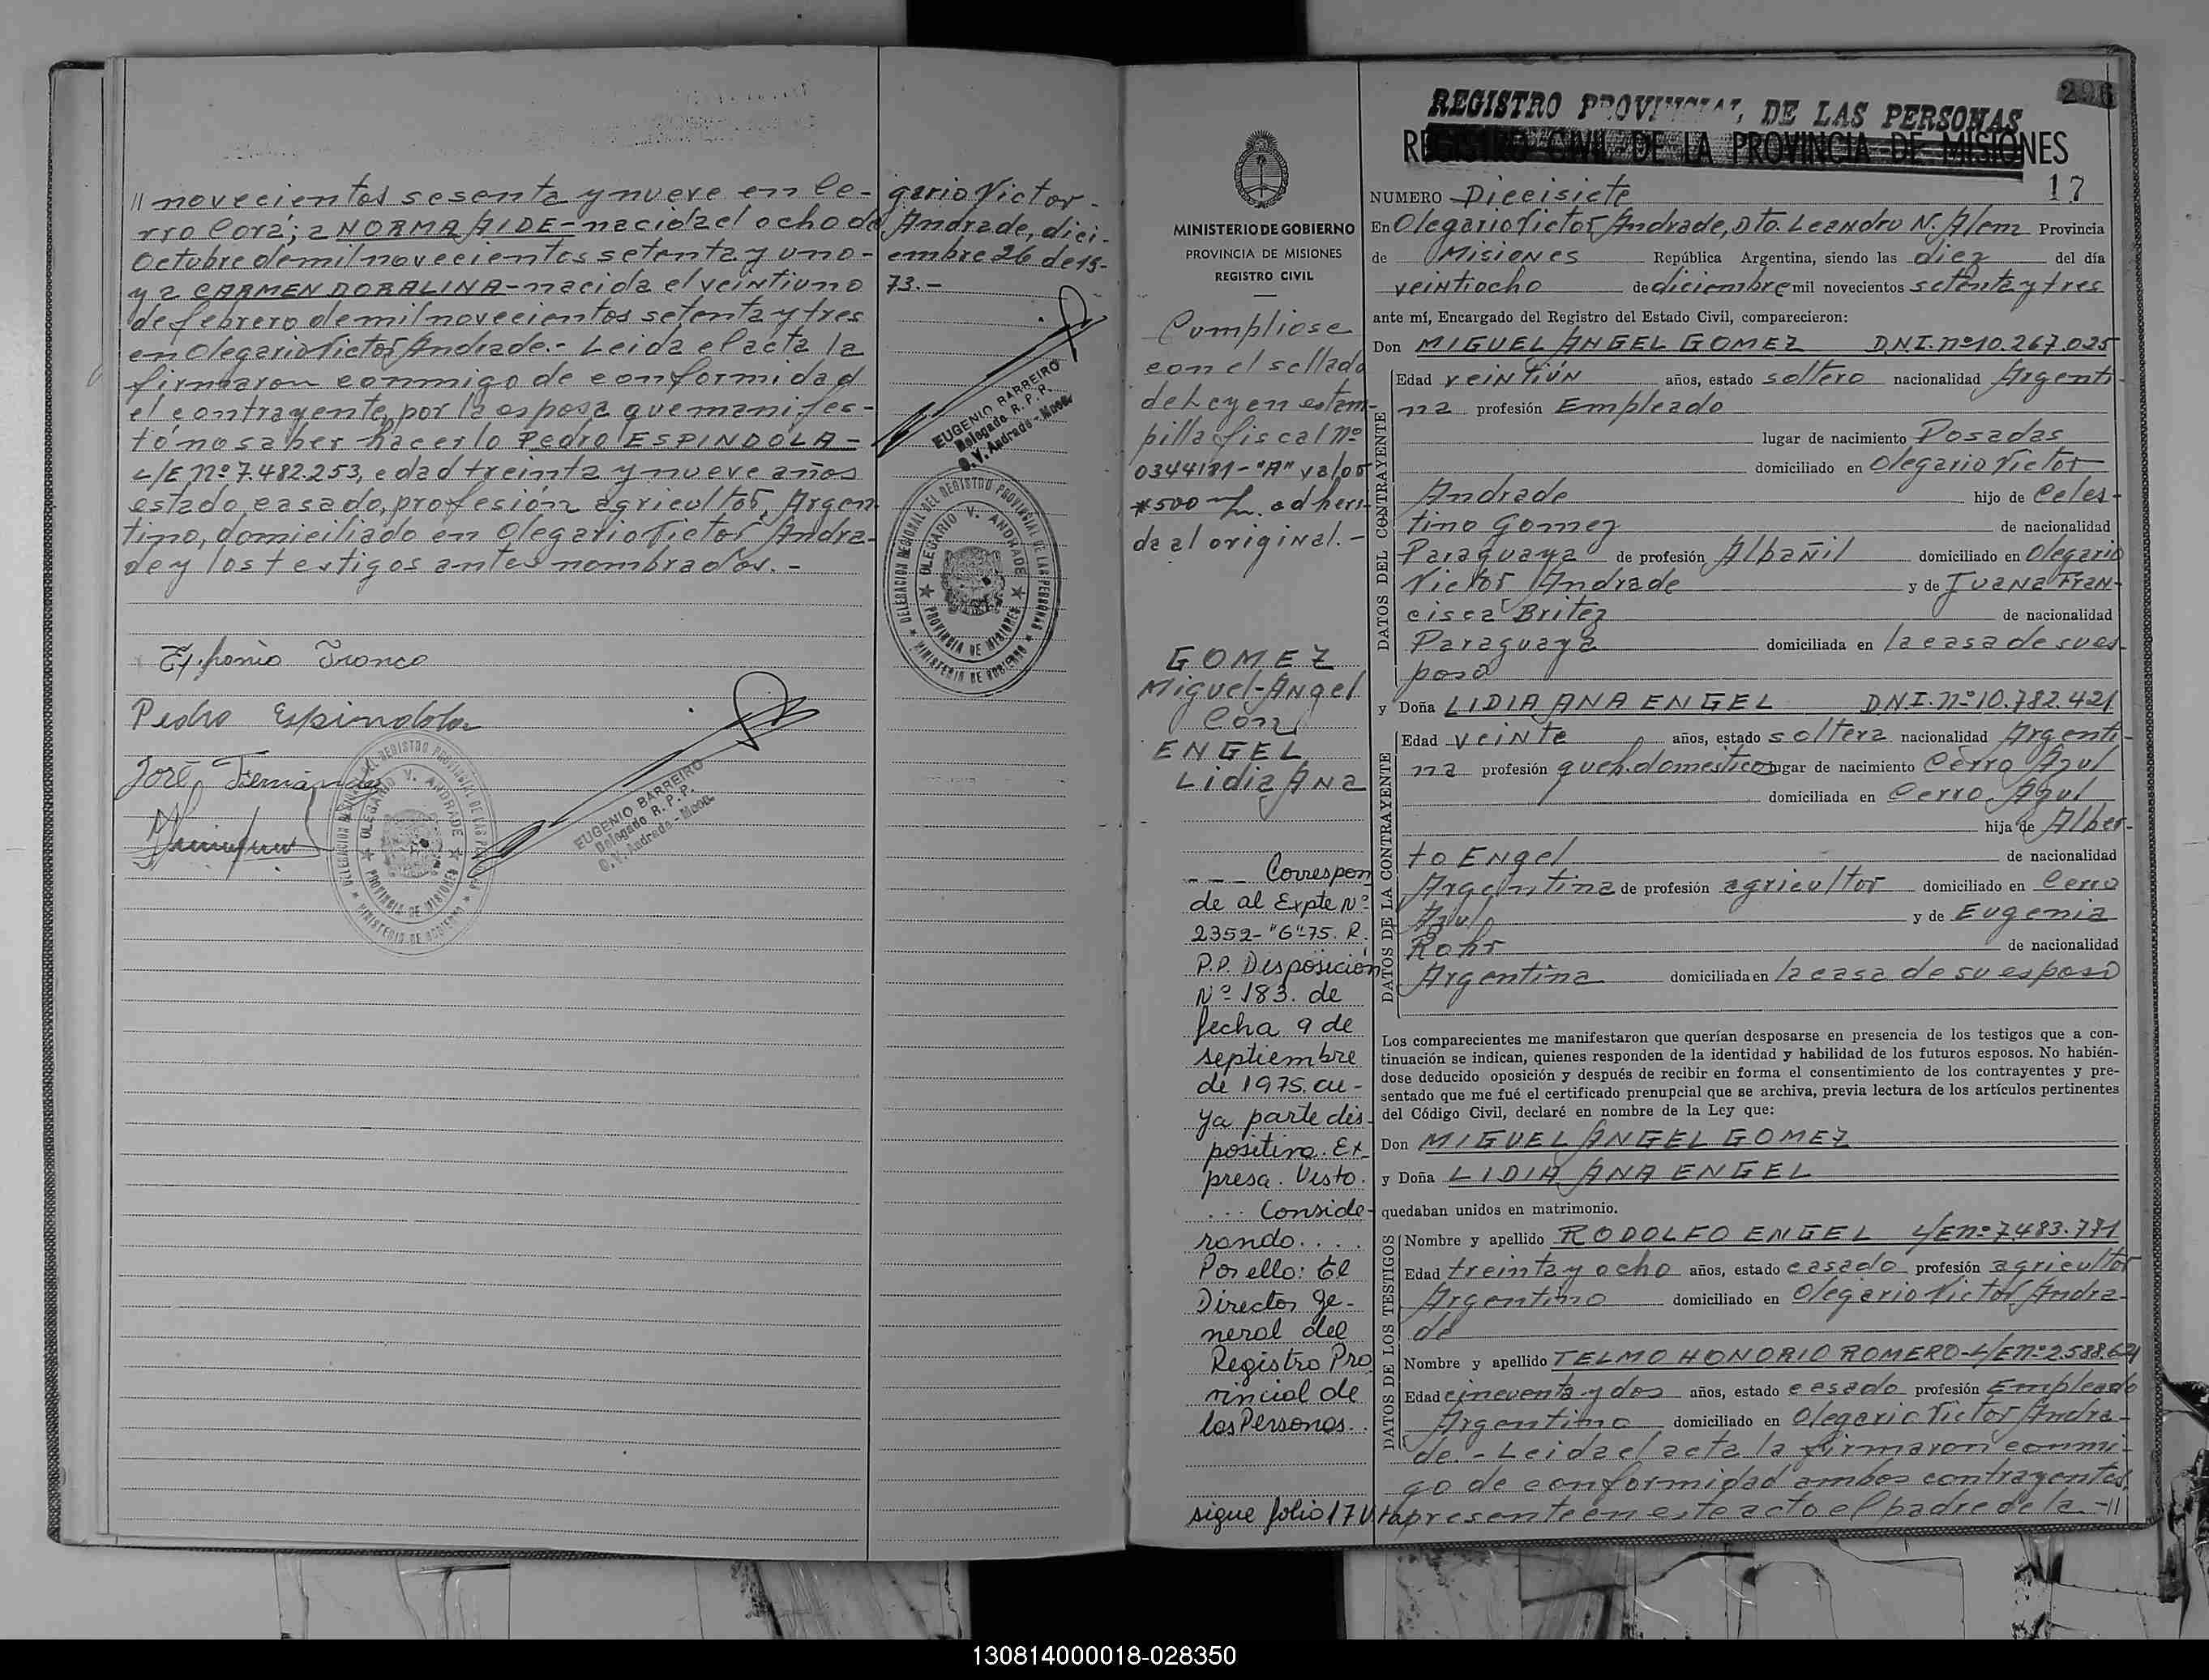 // novecientos sesenta y nueve en Ce-
rro Corá; a NORMA AIDE - nacida el ocho de
Octubre de mil novecientos setenta y uno -
y a CARMEN DORALINA - nacida el veintiuno
de febrero de mil novecientos setenta y tres
en Olegario Victor Andrade.- Leida el acta la
firmaron conmigo de conformidad
el contrayente, por la esposa que manifes-
tó no saber hacerlo Pedro ESPINDOLA -
L/E Nº 7.482.253, edad treinta y nueve años
estado casado, profesión agricultor, Argen-
tino, domiciliado en Olegario Victor Andra-
de y los testigos antes nombrados. -
gario Victor -
Andrade, dici-
embre 26 de 19-
73.-
EUGENIO BARREIRO
Delegado R. P. P.
O. V. Andrade - Mnes.
DELEGACION REGIONAL DEL REGISTRO PROVINCIAL DE LAS PERSONAS
OLEGARIO V. ANDRADE
PROVINCIA DE MISIONES
MINISTERIO DE GOBIERNO
Tronco
Pedro Espindola
José Fernandez
DELEGACION REGIONAL DEL REGISTRO PROVINCIAL DE LAS PERSONAS
OLEGARIO V. ANDRADE
PROVINCIA DE MISIONES
MINISTERIO DE GOBIERNO
EUGENIO BARREIRO
Delegado R. P. P.
O. V. Andrade - Mnes.
MINISTERIO DE GOBIERNO
PROVINCIA DE MISIONES
REGISTRO CIVIL
Cumpliose
con el sellado
de Ley en estam-
pilla fiscal Nº
0344181-"A" valor
$500 m/n. adheri-
da al original. -
GOMEZ
Miguel-Angel
Con
ENGEL
Lidia Ana
- - - Correspon
de al Expte Nº
2352-"G"-75. R.
P.P. Disposición
Nº 183. de
fecha 9 de
septiembre
de 1975. cu-
ya parte dis-
positiva. Ex-
presa. Visto.
... Conside-
rando. . . .
Por ello: El
Director Ge-
neral del
Registro Pro
vincial de
las Personas..
sigue folio 17 Vta
296
REGISTRO PROVINCIAL DE LAS PERSONAS
REGISTRO CIVIL DE LA PROVINCIA DE MISIONES
17
NUMERO Diecisiete
En Olegario Victor Andrade, Dto. Leandro N. Alem Provincia
de Misiones República Argentina, siendo las diez del día
veintiocho de diciembre mil novecientos setenta y tres
ante mí, Encargado del Registro del Estado Civil, comparecieron:
Don MIGUEL ANGEL GOMEZ D.N.I. nº 10.267.025
DATOS DEL CONTRAYENTE
Edad veintiún años, estado soltero nacionalidad Argenti-
na profesión Empleado
lugar de nacimiento Posadas
domiciliado en Olegario Victor
Andrade hijo de Celes-
tino Gomez de nacionalidad
Paraguaya de profesión Albañil domiciliado en Olegario
Victor Andrade y de Juana Fran-
cisca Britez de nacionalidad
Paraguaya domiciliada en la casa de su es-
poso
y Doña LIDIA ANA ENGEL D.N.I. nº 10.782.421
DATOS DE LA CONTRAYENTE
Edad veinte años, estado soltera nacionalidad Argenti-
na profesión queh.domestico lugar de nacimiento Cerro Azul
domiciliada en Cerro Azul
hija de Alber-
to Engel de nacionalidad
Argentina de profesión agricultor domiciliado en Cerro
Azul y de Eugenia
Rohr de nacionalidad
Argentina domiciliada en la casa de su esposo
Los comparecientes me manifestaron que querían desposarse en presencia de los testigos que a con-
tinuación se indican, quienes responden de la identidad y habilidad de los futuros esposos. No habién-
dose deducido oposición y después de recibir en forma el consentimiento de los contrayentes y pre-
sentado que me fué el certificado prenupcial que se archiva, previa lectura de los artículos pertinentes
del Código Civil, declaré en nombre de la Ley que:
Don MIGUEL ANGEL GOMEZ
y Doña LIDIA ANA ENGEL
quedaban unidos en matrimonio.
DATOS DE LOS TESTIGOS
Nombre y apellido RODOLFO ENGEL L/E nº 7.483.771
Edad treinta y ocho años, estado casado profesión agricultor
Argentino domiciliado en Olegario Victor Andra-
de
Nombre y apellido TELMO HONORIO ROMERO-L/E nº
Edad cincuenta y dos años, estado casado profesión Empleado
Argentino domiciliado en Olegario Victor Andra-
de. - Leida el acta la firmaron conmi-
go de conformidad ambos contrayentes
presente en este acto el padre de la -//
130814000018-028350